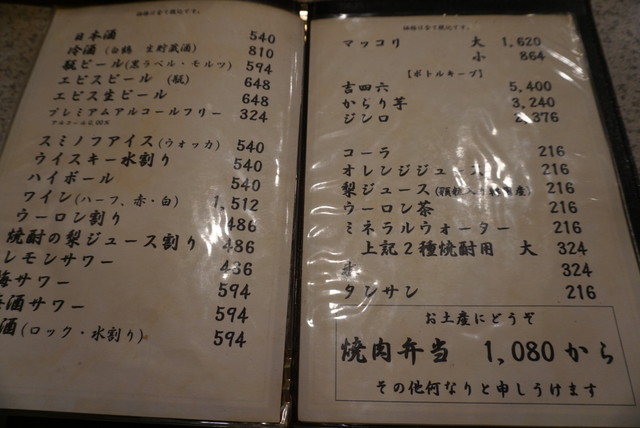 価格は全て税込です。
日本酒 540
冷酒(白鶴 生貯蔵酒) 810
瓶ビール(黒ラベル・モルツ) 594
エビスビール (瓶) 648
エビス生ビール 648
プレミアムアルコールフリー 324
スミノフアイス(ウォッカ) 540
ウイスキー水割り 540
ハイボール 540
ワイン(ハーフ、赤・白) 1,512
ウーロン割り 486
焼酎の梨ジュース割り 486
レモンサワー 486
サワー 594
酒サワー 594
酒(ロック・水割り) 594
価格は全て税込です。
マッコリ 大 1,620
小 864
【ボトルキープ】
吉四六 5,400
からり芋 3,240
ジンロ 2,376
コーラ 216
オレンジジュース 216
梨ジュース 216
ウーロン茶 216
ミネラルウォーター 216
上記2種焼酎用 大 324
氷 324
タンサン 216
お土産にどうぞ
焼肉弁当 1,080から
その他何なりと申しうけます